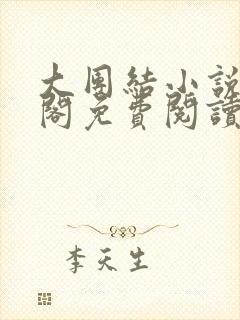 大團結小說
閣免費閱讀
李天生